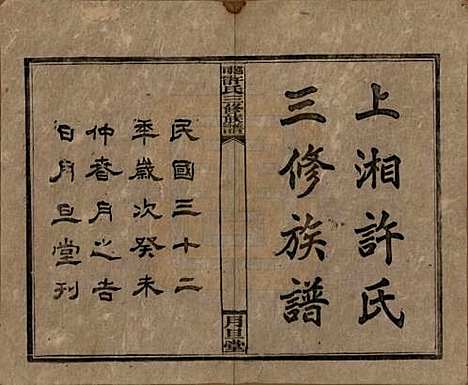 上湘許氏
三修族譜
許氏三修族譜
月旦堂
民國三十二
年歲次癸未
仲春月之吉
日月旦堂刊